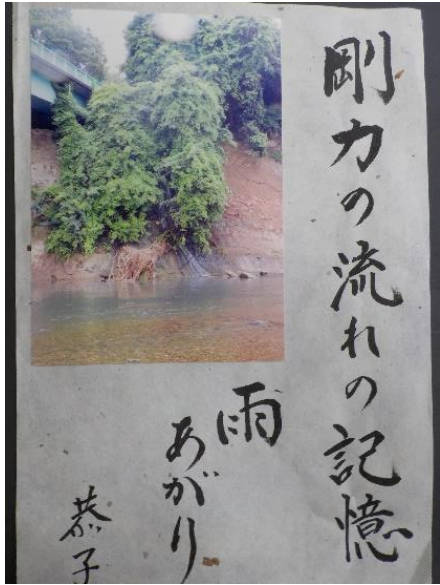 剛力の流れの記憶
雨
あがり
恭子